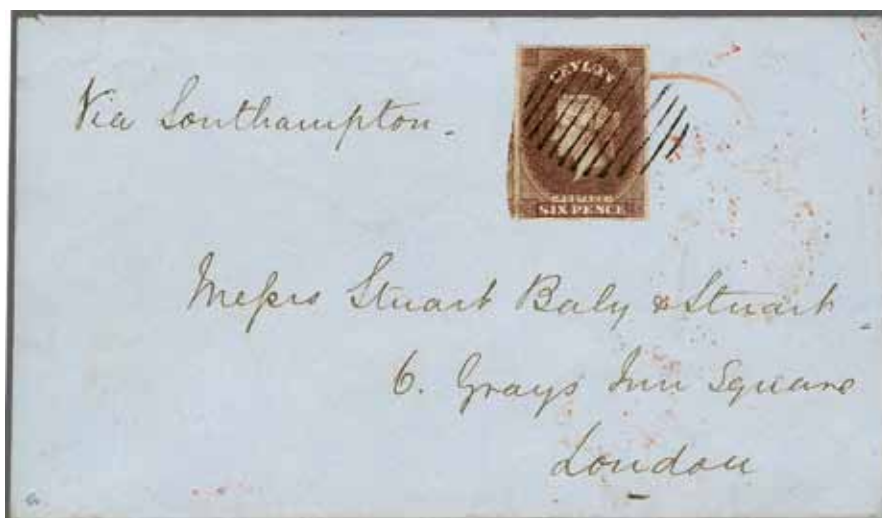 CEYLON
Via Southampton.
POSTAGE
SIX PENCE
Messrs Stuart Baly & Stuart
6. Grays Inn Square
London